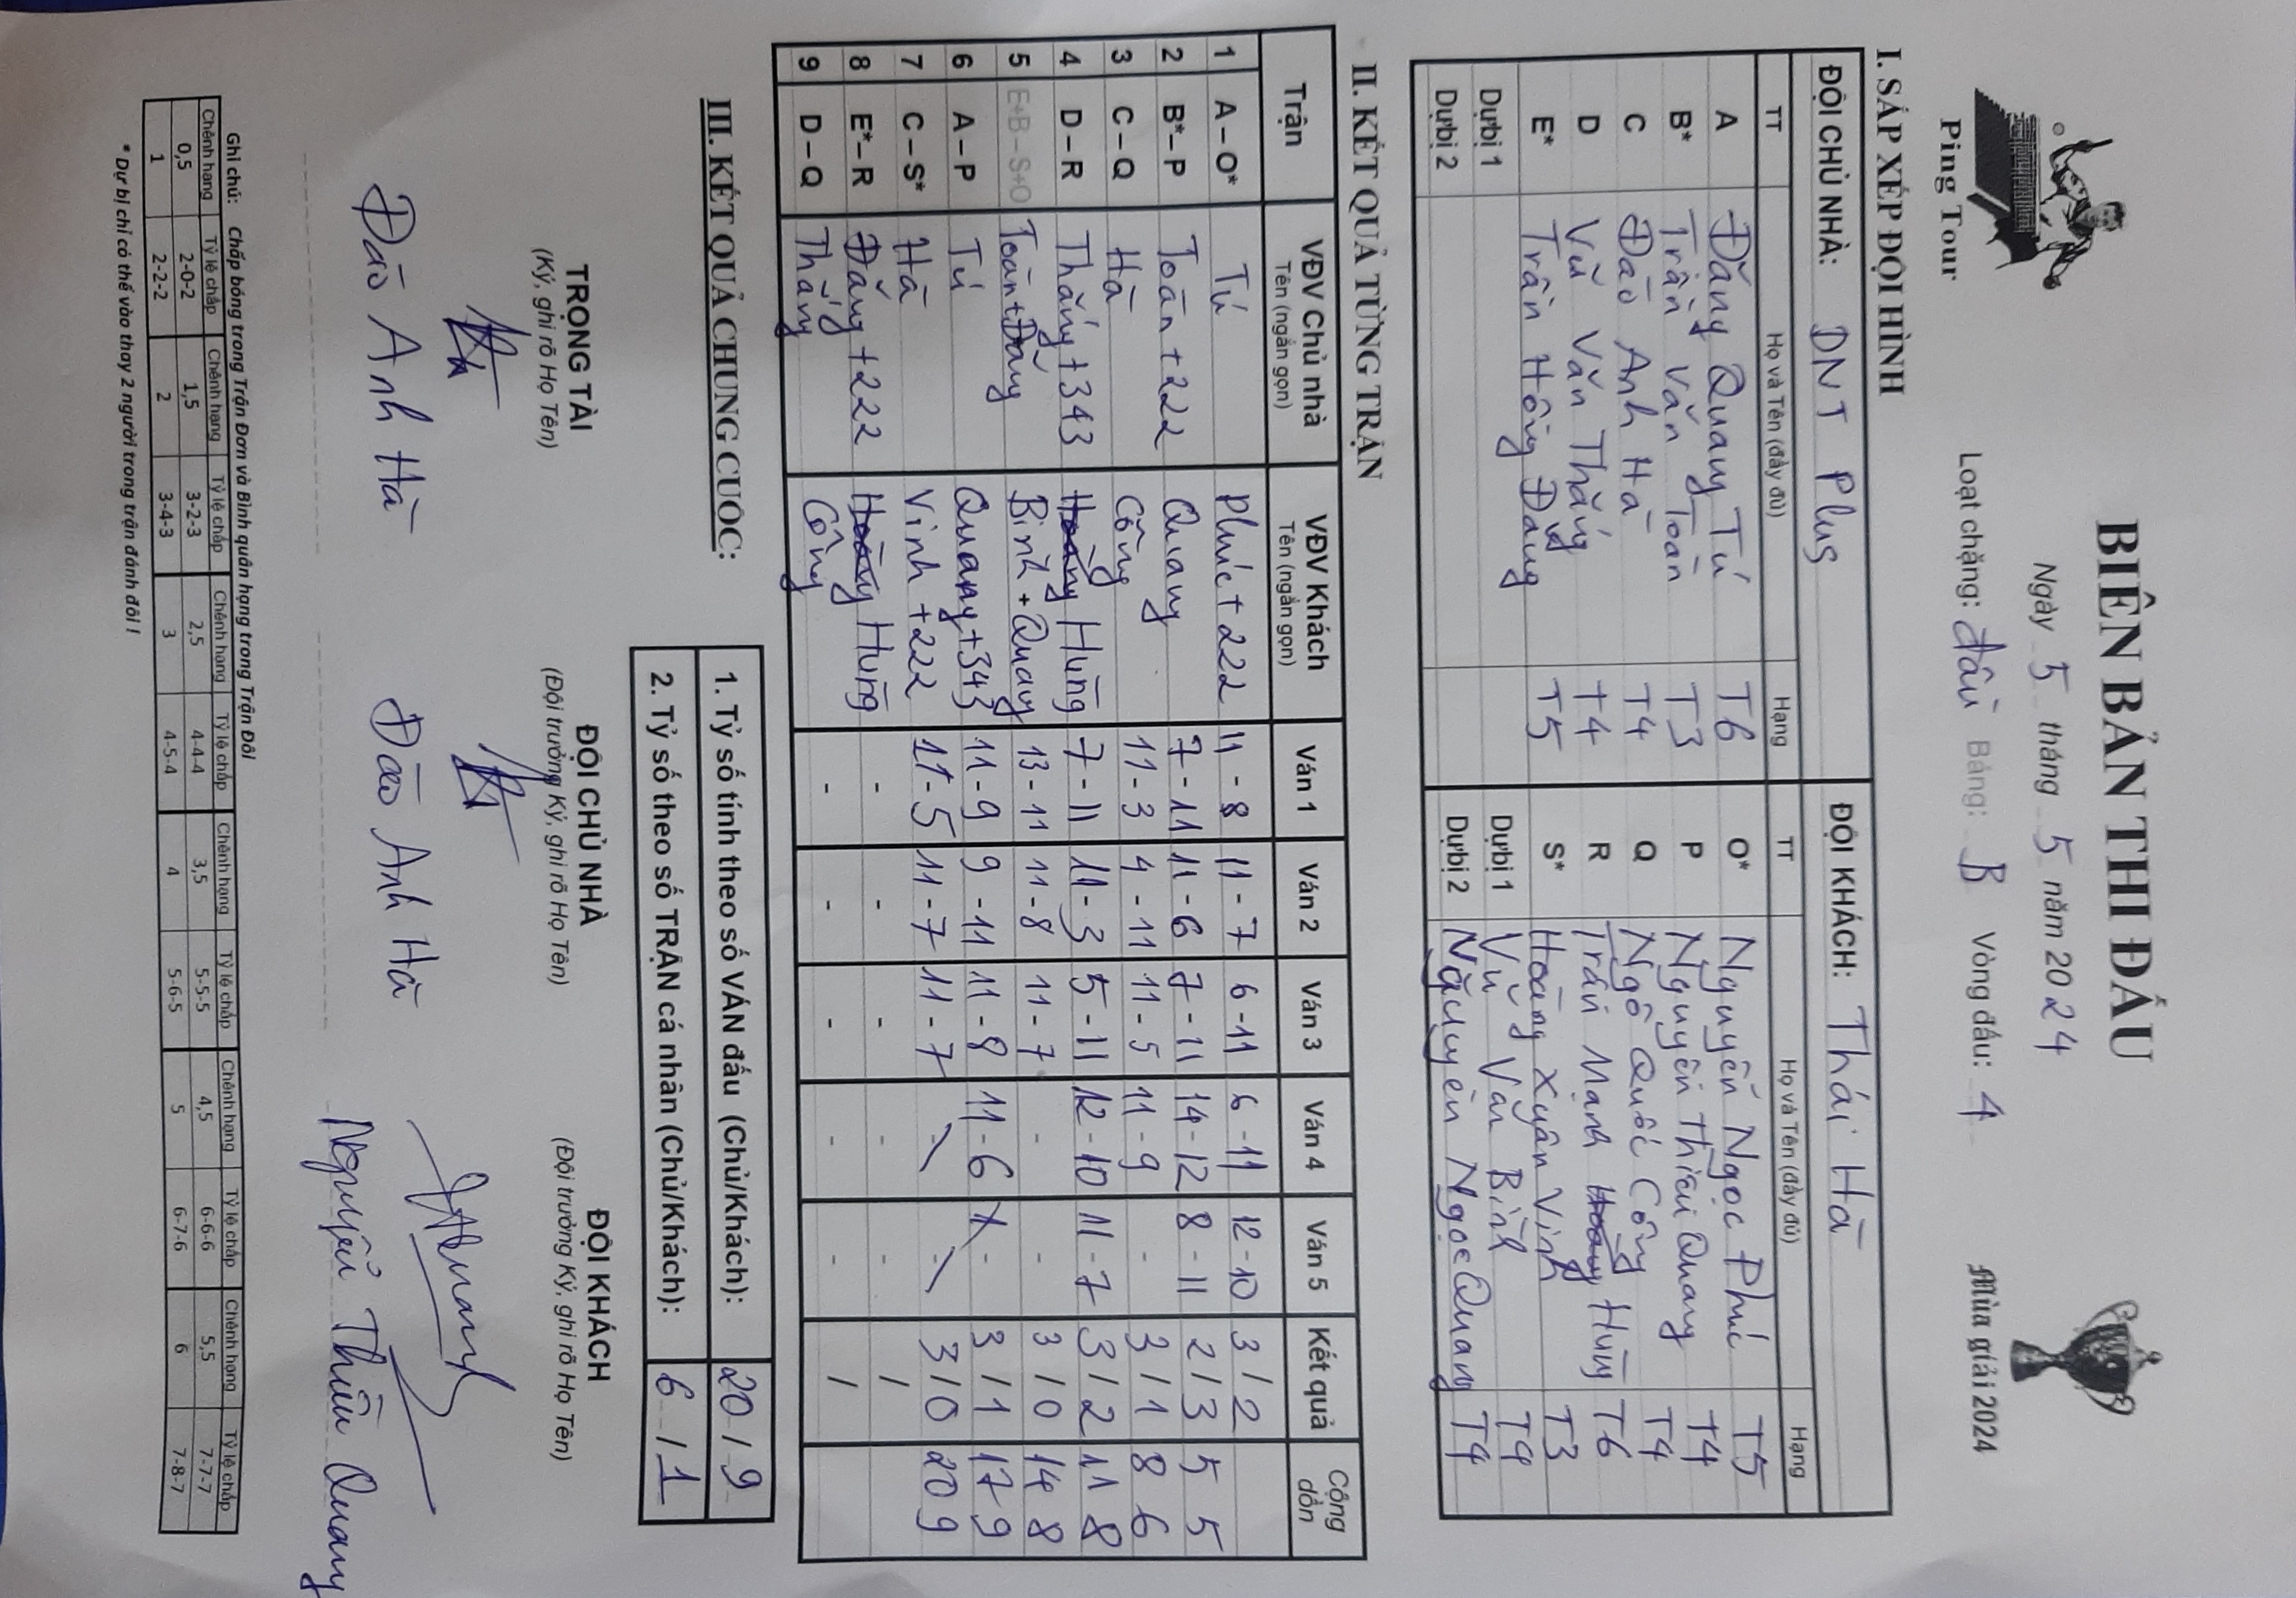 Ping Tour
BIÊN BẢN THI ĐẤU
Ngày 5 tháng 5 năm 2024
Loạt chặng: đấu Bảng: B Vòng đấu: 4
Mùa giải 2024
I. SẮP XẾP ĐỘI HÌNH
ĐỘI CHỦ NHÀ: DNT Plus ĐỘI KHÁCH: Thái Hà
TT Họ và Tên (đầy đủ) Hạng TT Họ và Tên (đầy đủ) Hạng
A Đặng Quang Tú T6 O* Nguyễn Ngọc Phúc T5
B* Trần Văn Toàn T3 P Nguyễn Thiều Quang T4
C Đào Anh Hà T4 Q Ngô Quốc Công T4
D Vũ Văn Thắng T4 R Trần Mạnh Hùng T6
E* Trần Hồng Đăng T5 S* Hoàng Xuân Vinh T3
Dự bị 1 Dự bị 1 Vũ Văn Bình T4
Dự bị 2 Dự bị 2 Nguyễn Ngọc Quang T4
II. KẾT QUẢ TỪNG TRẬN
Trận VĐV Chủ nhà VĐV Khách Ván 1 Ván 2 Ván 3 Ván 4 Ván 5 Kết quả Cộng dồn
Tên (ngắn gọn) Tên (ngắn gọn)
1 A – O* Tú Phúc + 222 11 - 8 11 - 7 6 - 11 6 - 11 12 - 10 3 / 2
2 B* – P Toàn + 222 Quang 7 - 11 11 - 6 7 - 11 14 - 12 8 - 11 2 / 3 5 5
3 C – Q Hà Công 11 - 3 4 - 11 11 - 5 11 - 9 - 3 / 1 8 6
4 D – R Thắng + 343 Hùng 7 - 11 11 - 3 5 - 11 12 - 10 11 - 7 3 / 2 11 8
5 E+B – S+O Toàn + Đăng Bình + Quang 13 - 11 11 - 8 11 - 7 - - 3 / 0 14 8
6 A – P Tú Quang + 343 11 - 9 9 - 11 11 - 8 11 - 6 - 3 / 1 17 9
7 C – S* Hà Vinh + 222 11 - 5 11 - 7 11 - 7 - - 3 / 0 20 9
8 E* – R Đăng + 222 Hùng - - - - - /
9 D – Q Thắng Công - - - - - /
III. KẾT QUẢ CHUNG CUỘC:
1. Tỷ số tính theo số VÁN đấu (Chủ/Khách): 20 / 9
2. Tỷ số theo số TRẬN cá nhân (Chủ/Khách): 6 / 1
TRỌNG TÀI ĐỘI CHỦ NHÀ ĐỘI KHÁCH
(Ký, ghi rõ Họ Tên) (Đội trưởng Ký, ghi rõ Họ Tên) (Đội trưởng Ký, ghi rõ Họ Tên)
Đào Anh Hà Đào Anh Hà Nguyễn Thiều Quang
Ghi chú: Chấp bóng trong Trận Đơn và Bình quân hạng trong Trận Đôi
Chênh hạng Tỷ lệ chấp Chênh hạng Tỷ lệ chấp Chênh hạng Tỷ lệ chấp Chênh hạng Tỷ lệ chấp Chênh hạng Tỷ lệ chấp Chênh hạng Tỷ lệ chấp
0,5 2-0-2 1,5 3-2-3 2,5 4-4-4 3,5 5-5-5 4,5 6-6-6 5,5 7-7-7
1 2-2-2 2 3-4-3 3 4-5-4 4 5-6-5 5 6-7-6 6 7-8-7
* Dự bị chỉ có thể vào thay 2 người trong trận đánh đôi !